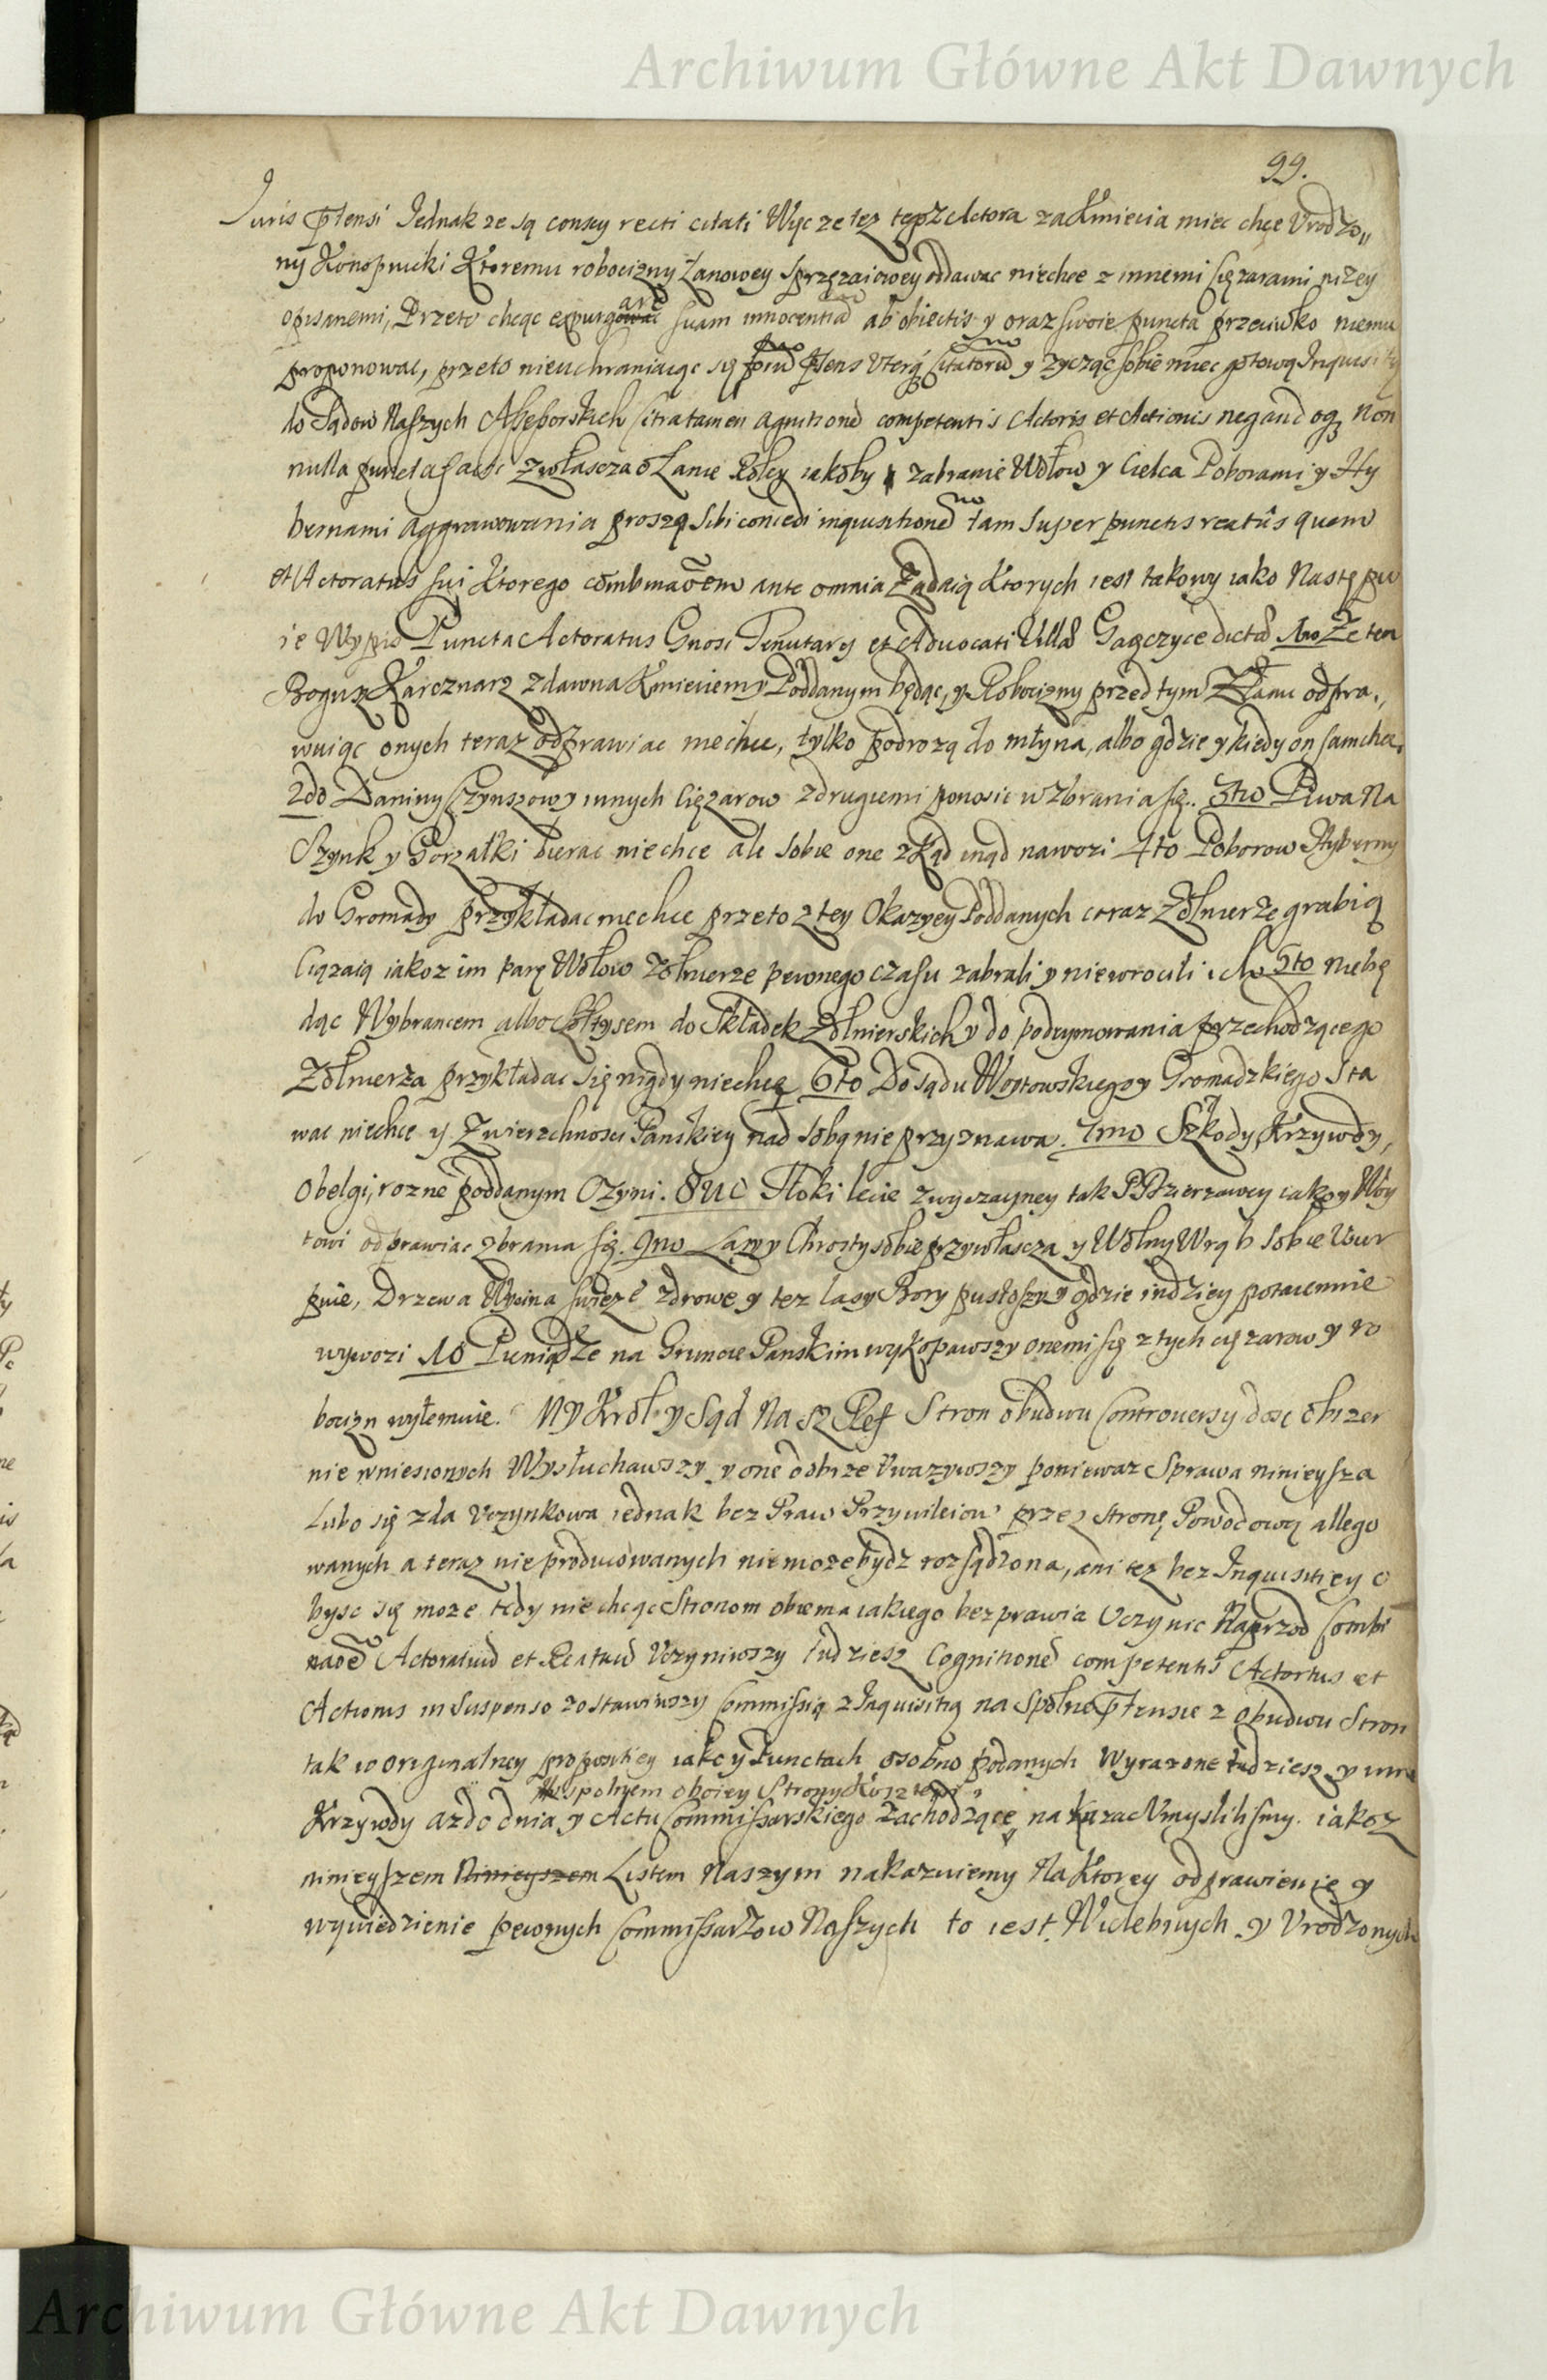 Archiwum Główne Akt Dawnych
99.
Juris ptensi Jednakze są consey recti citati Więc ze tez tegoz Actora za Kmiecia miec chce Vrodzo„
ny Konopnicki Ktoremu robocizny Łanowey sprzęzaiowey oddawac niechce z innemi cięzarami nizey
opisanemi, Przeto chcąc expurgare suam innocentia ab obiectis y oraz swoie puncta przeciwko niemu
proponowac, przeto nieuchraniaiąc się ptens vterq citatoru y zycząc sobie miec gotową Inquisity
do Sądow Naszych Assessorskich citra tamen agnitione competentis Actoris et Actionis negand oq non
nulla puncta zwłascza o Łanie Roley iakoby zabranie Wołow y Cielca Poborami y Hy
bernami aggrawowania proszą sibi concedi inquisitione tam super punctis reatûs quam
et Actoratus sui Ktorego combinaoem ante omnia Ządaią Ktorych iest takowy iako Nastę pu
ie Wypis Puncta Actoratus Gnosi Tenutarii et Advocati Villa Gaszczyce dicta 1mo Ze ten
Bogusz Karcznarz zdawna Kmieciem y Poddanym będąc, y Robocizny przed tym z Łanu odpra„
wuiąc onych teraz odprawiac niechce, tylko podrozą do młyna, albo gdzie y kiedy on sam chce.
2do Daniny Czynszow y innych Cięzarow z drugiemi ponosic wzbrania się. 3tio Piwa Na
Szynk y Gorzałki bierac niechce ale sobie one zkąd inąd nawozi 4to Poborow Hyberny
do Gromady przykładac niechce przeto z tey Okazyey Poddanych coraz Zołnierze grabią
Ciązaią iakoz im parę Wołow Zołnierze pewnego czasu zabrali y niewrocili ich 5to niebę
dąc Wybrancem albo Sołtysem do Składek Zołnierskich y do podeymowania przechodzącego
Zołnierza przykładac się nigdy niechce 6to Do sądu Woytowskiego y Gromadzkiego Sta
wac niechce y Zwierzchnosci Panskiey nad sobą nie przyznawa. 7mo Szkody, Krzywdy,
Obelgi, rozne poddanym Czyni. 8vo Tłoki lecie zwyczayney tak P Dzierzawcy iako y Woy
towi odprawiac zbrania się. 9no Lasy y Chrosty sobie przywłascza y Wolny Wrąb sobie Vzur
puie, Drzewa Wycina swieze zdrowe y tez lasy Bory pustoszy y gdzie indziey potaiemnie
wywozi 10 Pieniądze na Gruncie Panskim wykopawszy onemi się z tych cięzarow y ro
bocizn wyłemuie. My Krol y Sąd Nasz Ref Stron obudwu Controversy dosc obszer
nie wniesionych Wysłuchawszy y one dobrze Vwazywszy poniewaz Sprawa ninieysza
Lubo się zda Vczynkowa iednak bez Praw Przywileiow przez stronę Powodową allego
wanych a teraz nie produkowanych niemoze bydz rozsądzona, ani tez bez Inquisitiey o
bysc się moze tedy niechcąc Stronom obiema iakiego bezprawia Vczynic Naprzod Combi
naoe Actoratuu et Reatuu Vczyniwszy tudziesz Cognitione competentis Actoratus et
Actionis in Suspenso zostawiwszy Commissią z Inquisitią na Spolne ptensie z obudwu Stron
tak w originalney propositiey iako y Punctach osobno podanych Wyrazone tudziesz y inne
Wspolnem oboiey Strony Kosztem
Krzywdy az do dnia y Actu Commissarskiego Zachodzące nakazac Vmyslilismy. iakoz
ninieyszem Ninieyszem Listem Naszym nakazuiemy Na Ktorey odprawienie y
wywiedzienie pewnych Commissarzow Naszych to iest Wielebnych y Vrodzonych
Archiwum Główne Akt Dawnych